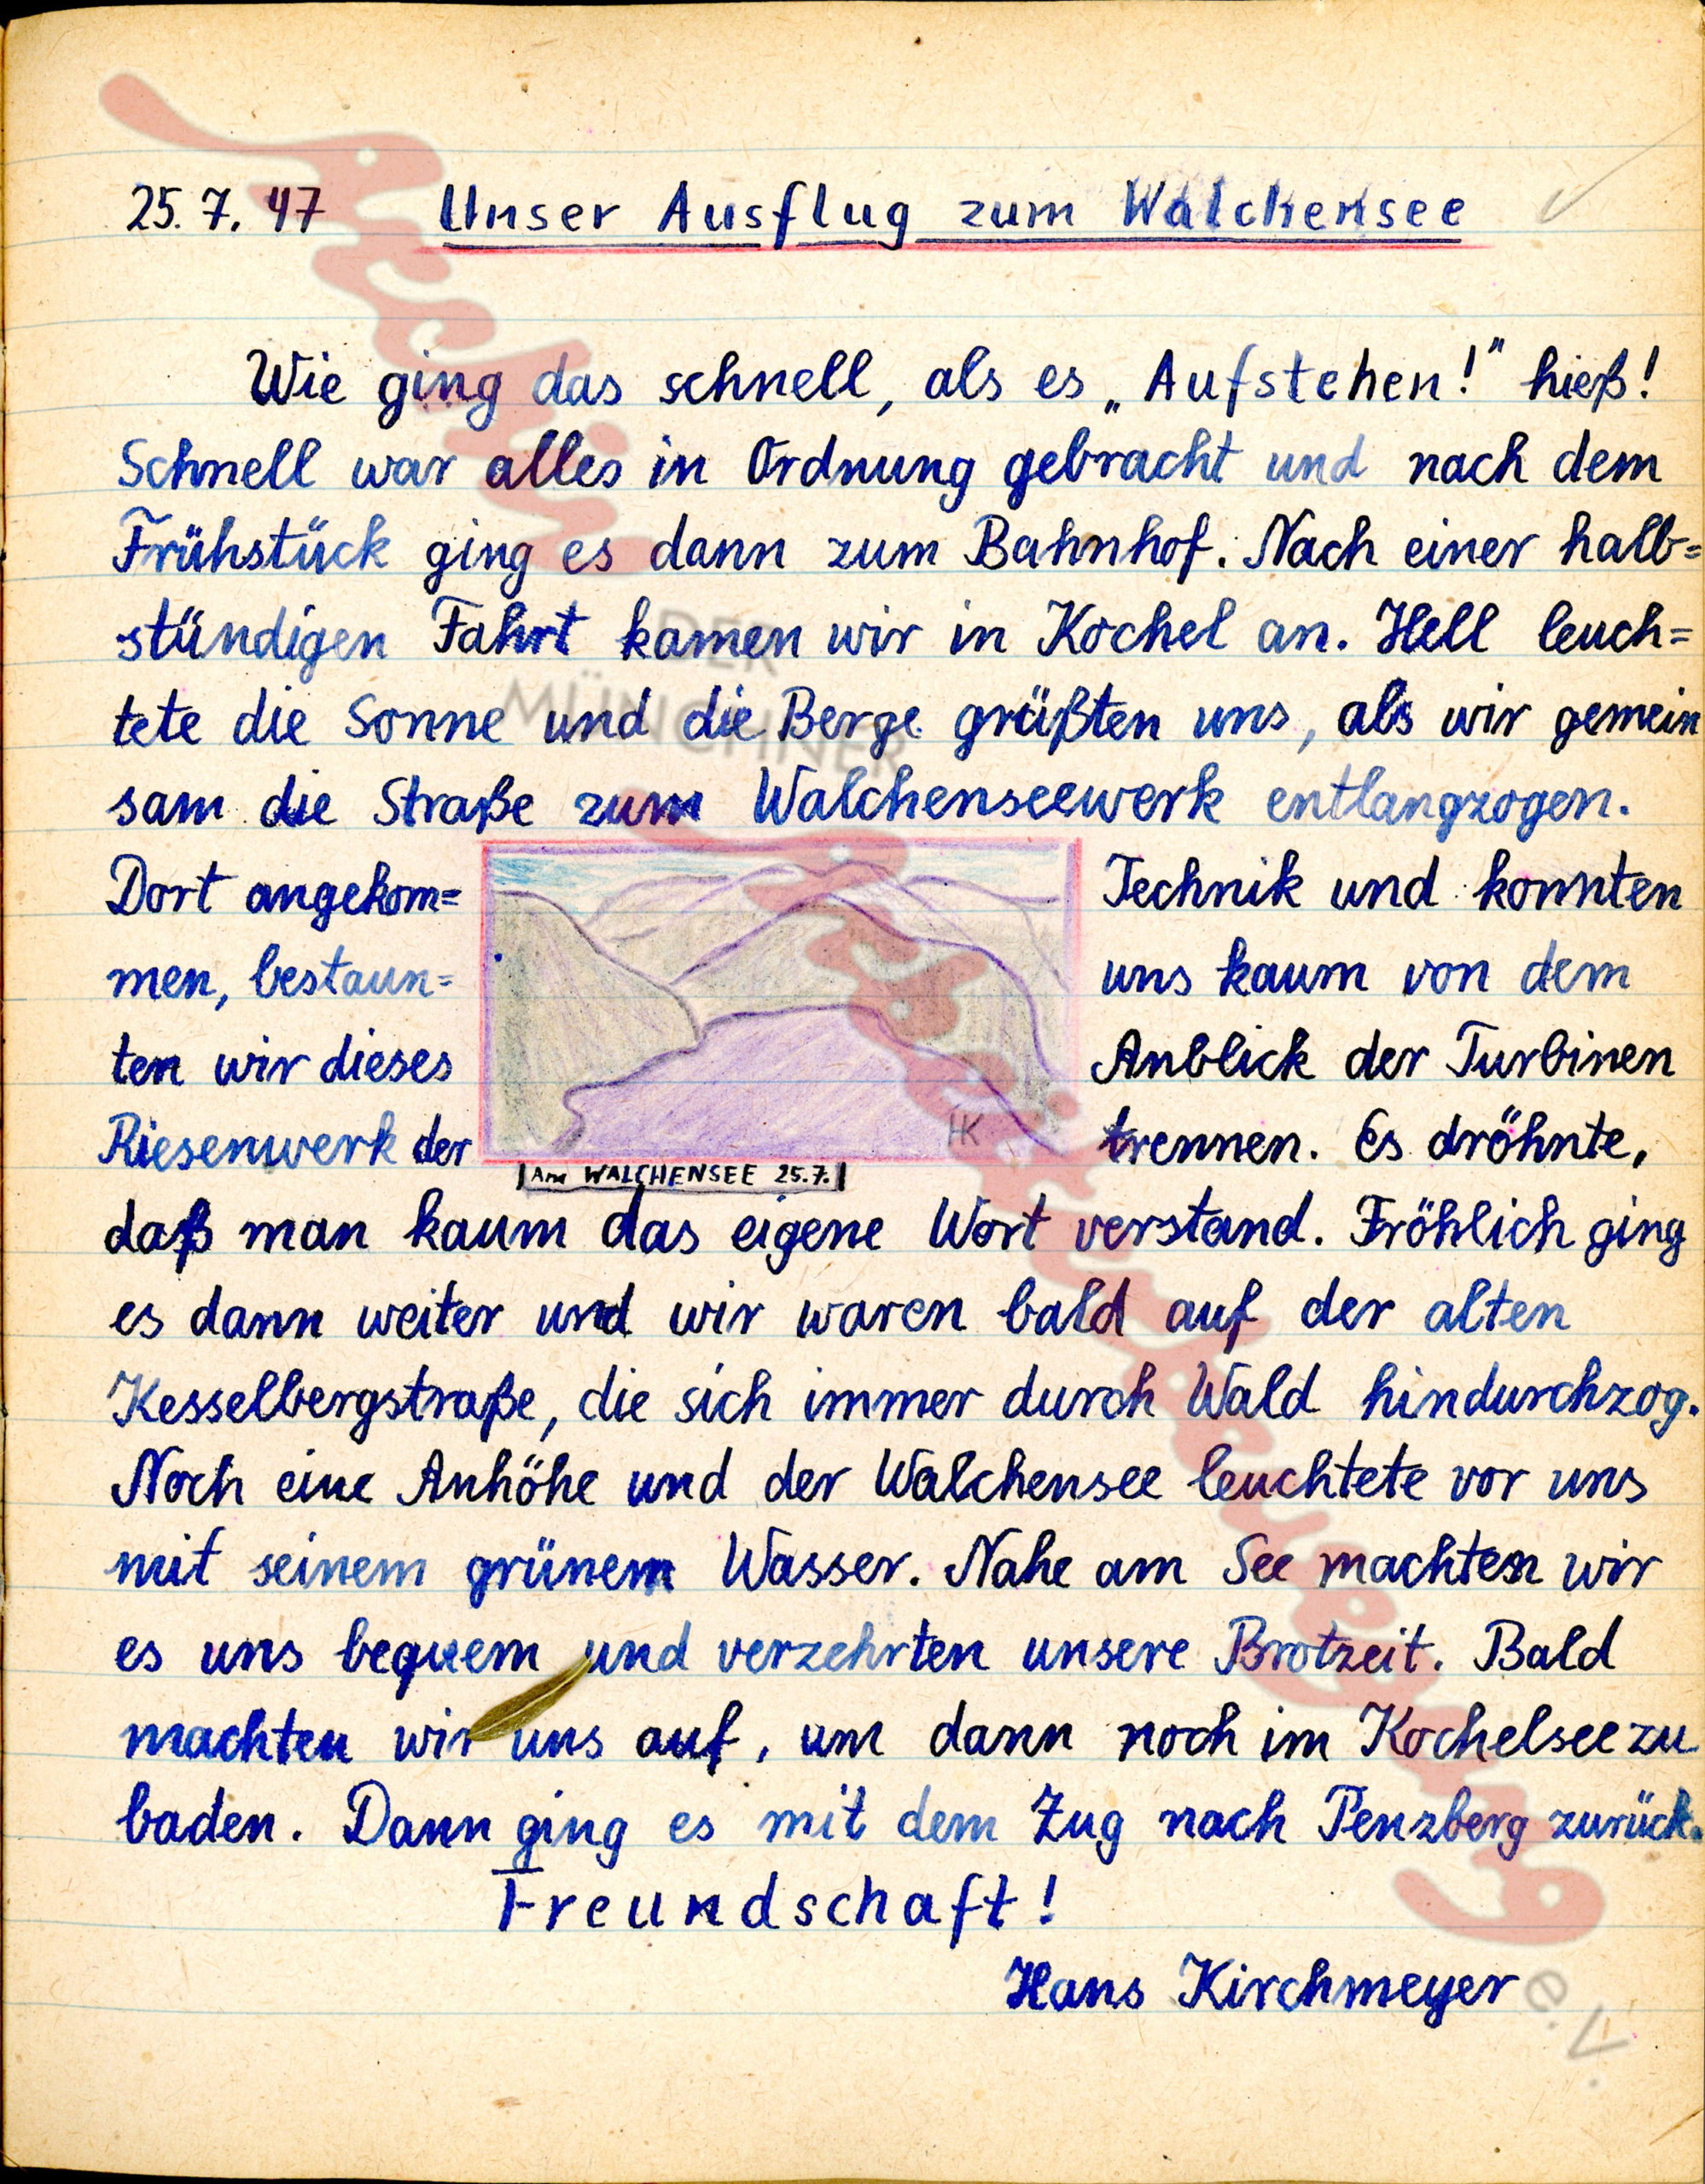 25.7.47 Unser Ausflug zum Walchensee
Wie ging das schnell, als es „Aufstehen!" hieß!
Schnell war alles in Ordnung gebracht und nach dem
Frühstück ging es dann zum Bahnhof. Nach einer halb=
stündigen Fahrt kamen wir in Kochel an. Hell leuch=
tete die Sonne und die Berge grüßten uns, als wir gemein
sam die Straße zum Walchenseewerk entlangzogen.
Dort angekom=
men, bestaun=
ten wir dieses
Riesenwerk der
HK
Am WALCHENSEE 25.7.
Technik und konnten
uns kaum von dem
Anblick der Turbinen
trennen. Es dröhnte,
daß man kaum das eigene Wort verstand. Fröhlich ging
es dann weiter und wir waren bald auf der alten
Kesselbergstraße, die sich immer durch Wald hindurchzog.
Noch eine Anhöhe und der Walchensee leuchtete vor uns
mit seinem grünem Wasser. Nahe am See machten wir
es uns bequem und verzehrten unsere Brotzeit. Bald
machten wir uns auf, um dann noch im Kochelsee zu
baden. Dann ging es mit dem Zug nach Penzberg zurück.
Freundschaft!
Hans Kirchmeyer
Archiv
DER
MÜNCHNER
Arbeiterbewegung
e.V.